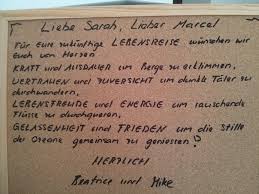 Liebe Sarah, Lieber Marcel
Für Eure zukünftige LEBENSREISE wünschen wir
Euch von Herzen
KRAFT und AUSDAUER um Berge zu erklimmen,
VERTRAUEN und ZUVERSICHT um dunkle Täler zu
durchwandern,
LEBENSFREUDE und ENERGIE um rauschende
Flüsse zu durchqueren,
GELASSENHEIT und FRIEDEN um die Stille
der Ozeane gemeinsam zu geniessen!
HERZLICH
Beatrice und Mike